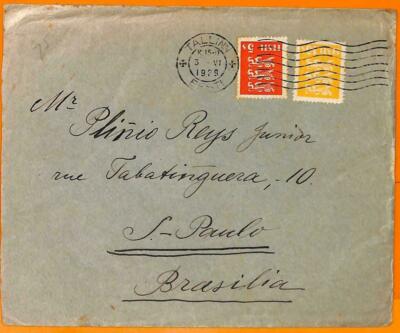 TALLINN
3 - VI
1929
EESTI
5
EESTI
Mr
Plinio Reys Junior
rue Tabatinguera, -10.
S-Paulo
Brasilia